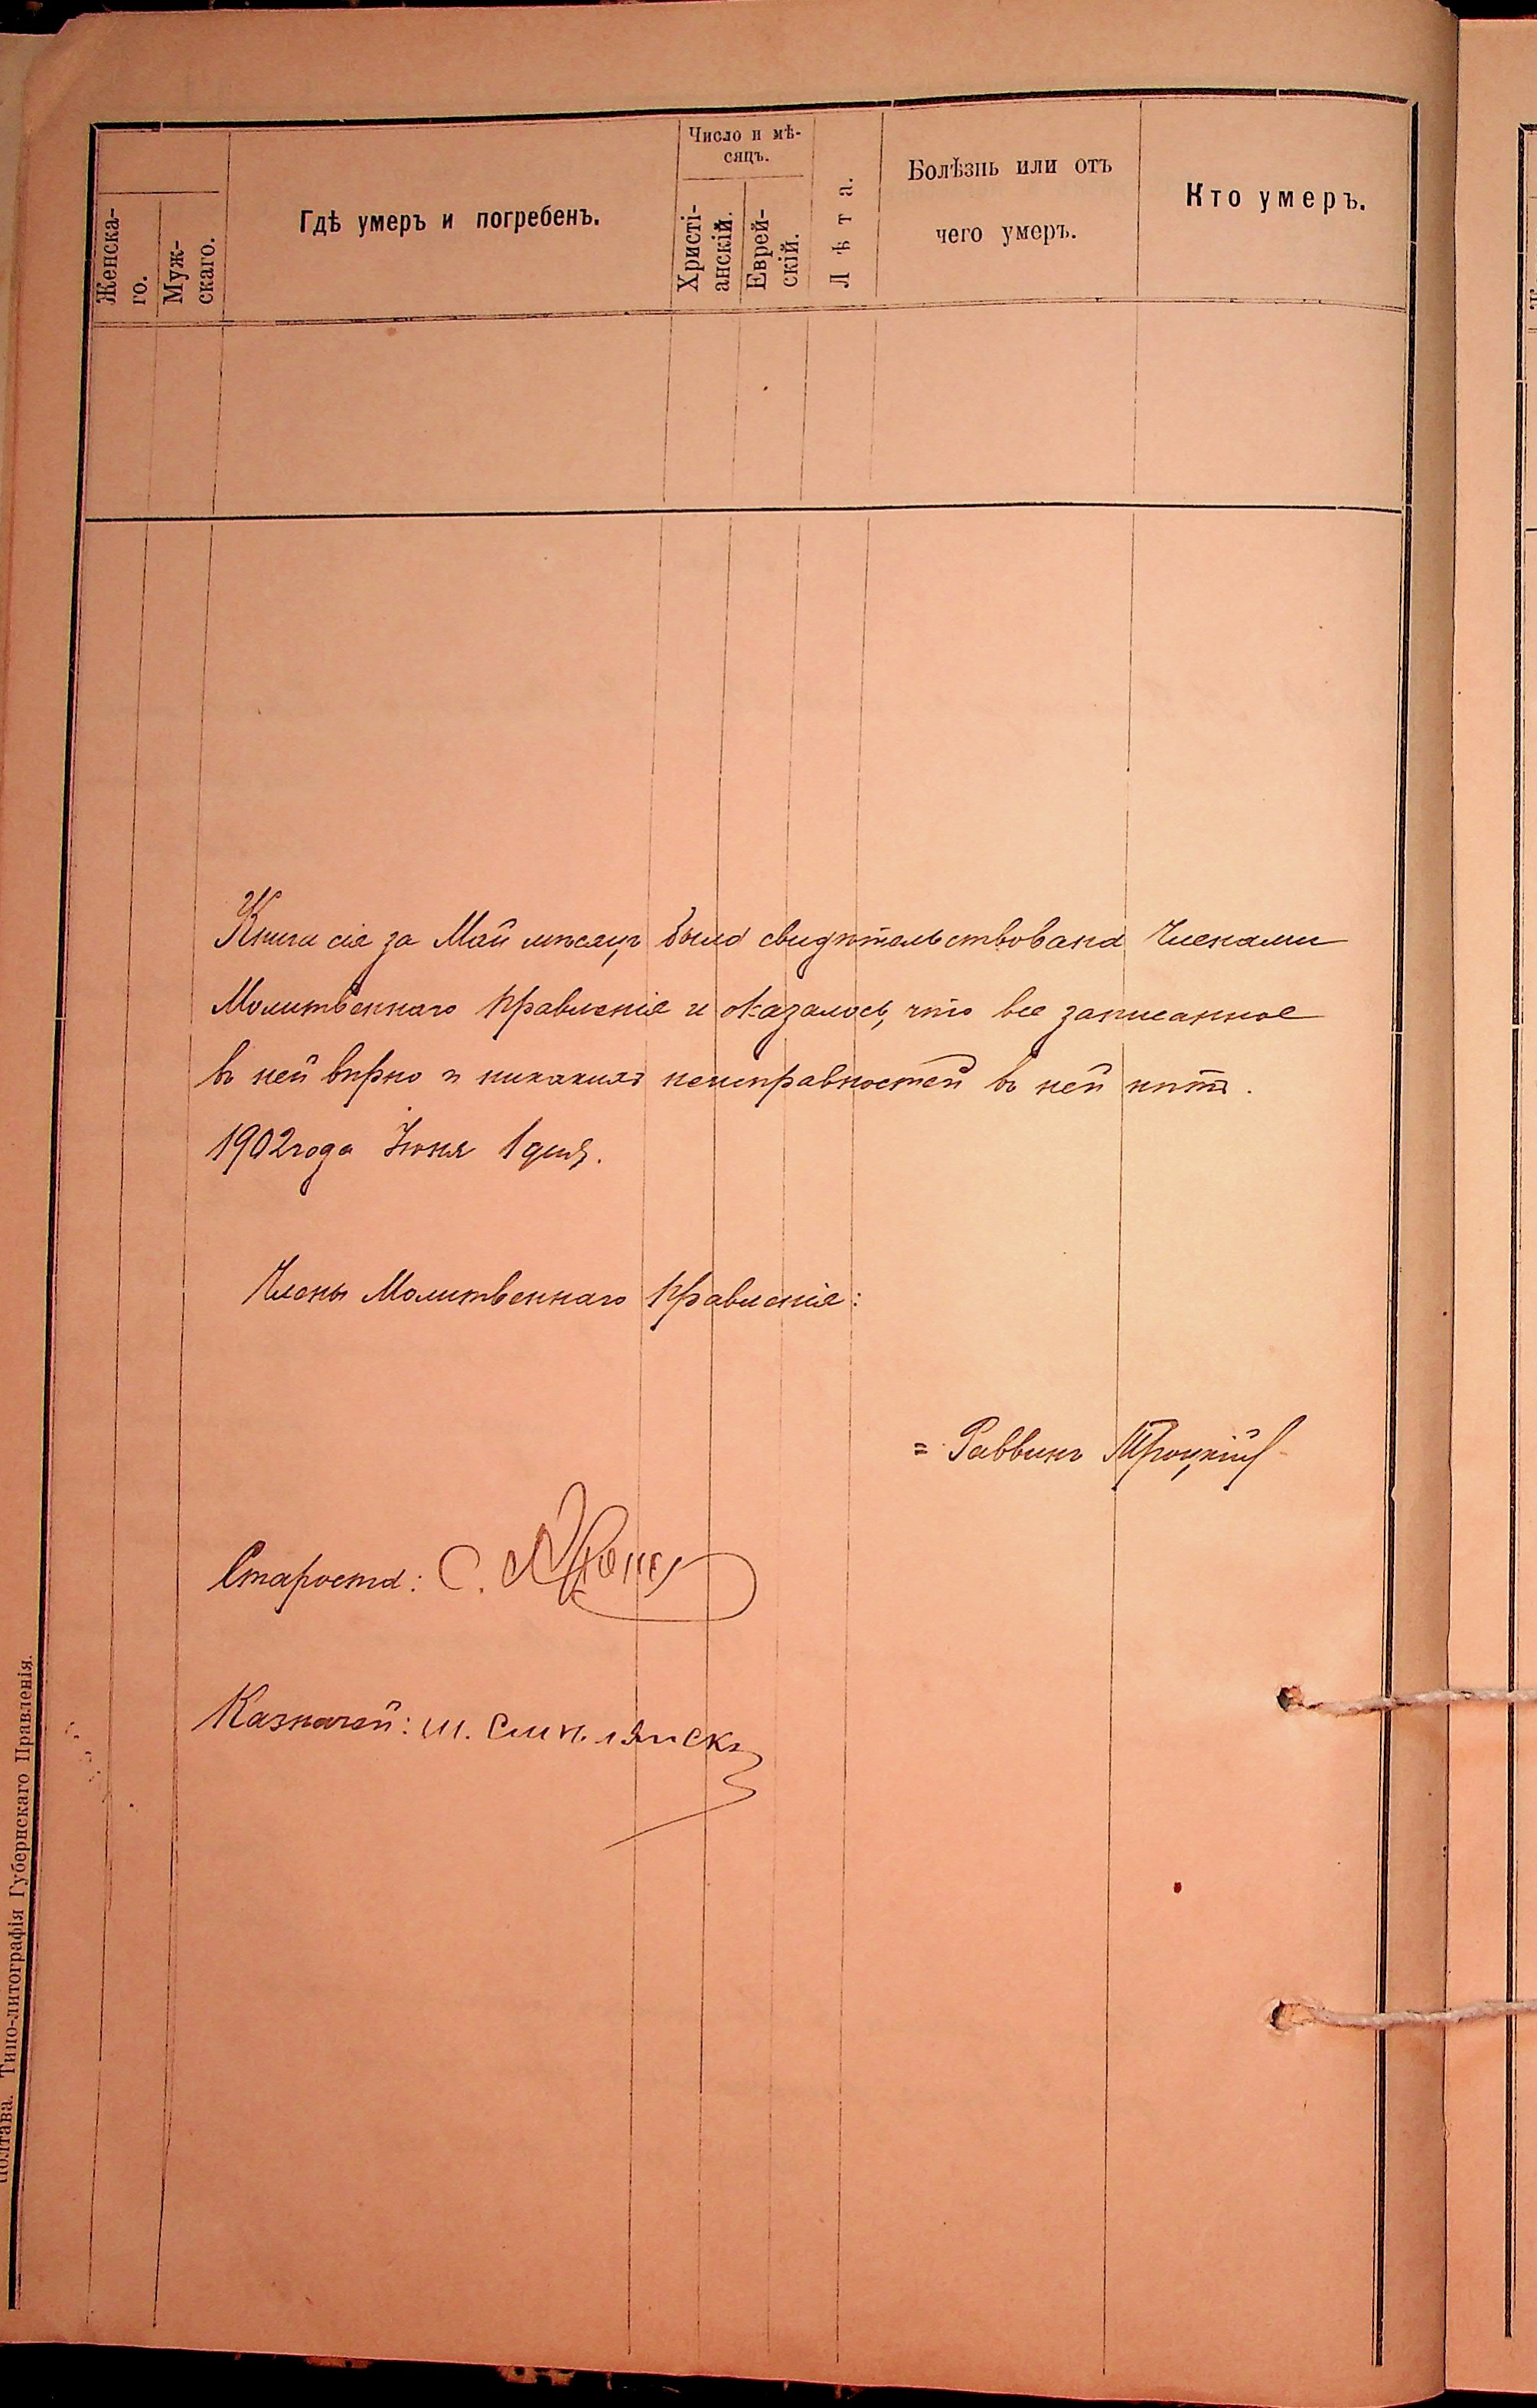 Число и мѣ-
сяцъ.
Женска-
го.
Муж-
скаго.
Гдѣ умеръ и погребенъ.
Христі-
анскій.
Еврей-
скій.
Лѣта.
Болѣзнь или отъ
чего умеръ.
Кто умеръ.
Книга сія за Май мѣсяцъ была свидѣтельствована Членами
Молитвеннаго Правленія и оказалось, что все записанное
въ ней вѣрно и никакихъ неисправностей въ ней нѣтъ.
1902 года Іюня 1 дня.
Члены Молитвеннаго Правленія:
= Раввинъ Троцкій
Староста: С.
Казначей: Ш.
Полтава. Типо-литографія Губернскаго Правленія.